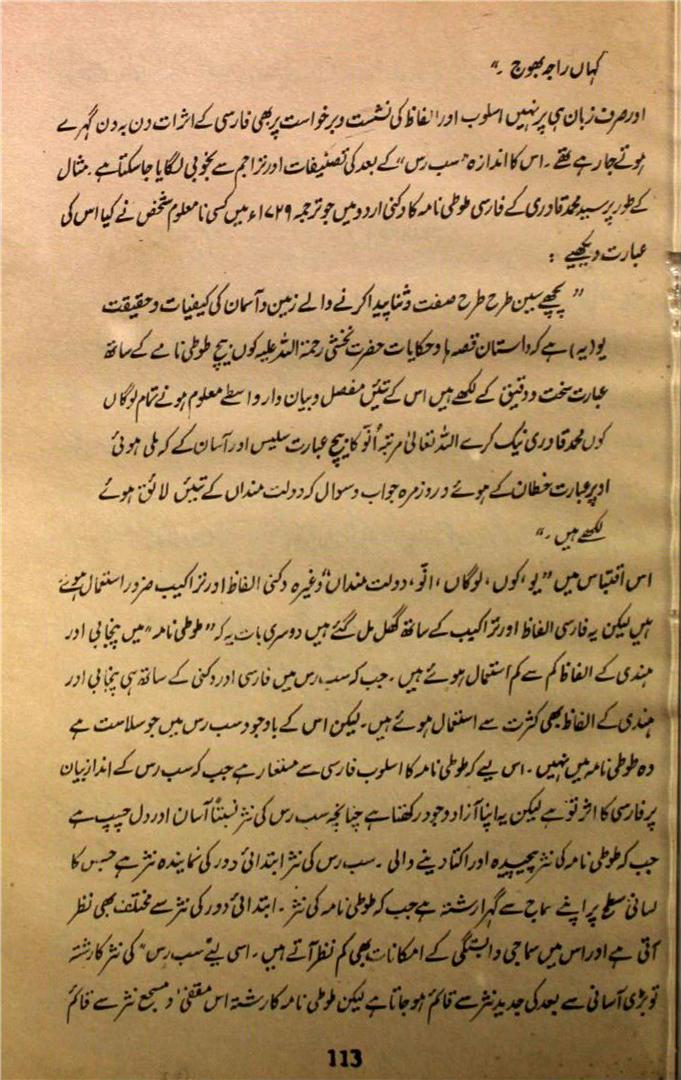 کہاں راجہ بھوج ۔“
اور صرف زبان ہی پر نہیں اسلوب اور الفاظ کی نشست و برخواست پر بھی فارسی کے اثرات دن بہ دن گہرے
ہوتے جا رہے تھے ۔ اس کا اندازہ ”سب رس“ کے بعد کی تصنیفات اور تراجم سے بخوبی لگایا جا سکتا ہے ۔ مثال
کے طور پر سید محمد قادری کے فارسی طوطی نامہ کا دکنی اردو میں جو ترجمہ ۱۷۲۹ء میں کسی نامعلوم شخص نے کیا اس کی
عبارت دیکھیے :
” پچھے سین طرح طرح صفت و ثنا پیدا کرنے والے زمین و آسمان کی کیفیات و حقیقت
یو (یہ) ہے کہ داستان قصہ ہا و حکایات حضرت نخشبی رحمۃ اللہ علیہ کوں بیچ طوطی نامے کے ساتھ
عبارت سخت و دقیق کے لکھے ہیں اس کے تئیں مفصل و بیان وار واسطے معلوم ہونے تمام لوگاں
کوں محمد قادری نیک کرے اللہ تعالیٰ مرتبہ اُنو کا بیچ عبارت سلیس اور آسان کے کہ ملی ہوئی
اوپر عبارت خطان کے ہوئے و روزمرہ جواب و سوال کہ دولت منداں کے تئیں لائق ہوئے
لکھے ہیں ۔“
اس اقتباس میں ”یو، کوں، لوگاں ، انّو، دولت منداں“ وغیرہ دکنی الفاظ اور تراکیب ضرور استعمال ہوئے
ہیں لیکن یہ فارسی الفاظ اور تراکیب کے ساتھ گھل مل گئے ہیں دوسری بات یہ کہ ”طوطی نامہ“ میں پنجابی اور
ہندی کے الفاظ کم سے کم استعمال ہوئے ہیں ۔ جب کہ سب رس میں فارسی اور دکنی کے ساتھ ہی پنجابی اور
ہندی کے الفاظ بھی کثرت سے استعمال ہوئے ہیں ۔ لیکن اس کے باوجود سب رس میں جو سلاست ہے
وہ طوطی نامہ میں نہیں ۔ اس لیے کہ طوطی نامہ کا اسلوب فارسی سے مستعار ہے جب کہ سب رس کے انداز بیان
پر فارسی کا اثر تو ہے لیکن یہ اپنا آزاد وجود رکھتا ہے چنانچہ سب رس کی نثر نسبتاً آسان اور دل چسپ ہے
جب کہ طوطی نامہ کی نثر پیچیدہ اور اکتا دینے والی ۔ سب رس کی نثر ابتدائی دور کی نمایندہ نثر ہے جس کا
لسانی سطح پر اپنے سماج سے گہرا رشتہ ہے جب کہ طوطی نامہ کی نثر ۔ ابتدائی دور کی نثر سے مختلف بھی نظر
آتی ہے اور اس میں سماجی وابستگی کے امکانات بھی کم نظر آتے ہیں ۔ اسی لیے سب رس“ کی نثر کا رشتہ
تو بڑی آسانی سے بعد کی جدید نثر سے قائم ہو جاتا ہے لیکن طوطی نامہ کا رشتہ اس مقفیٰ و مسجع نثر سے قائم
113